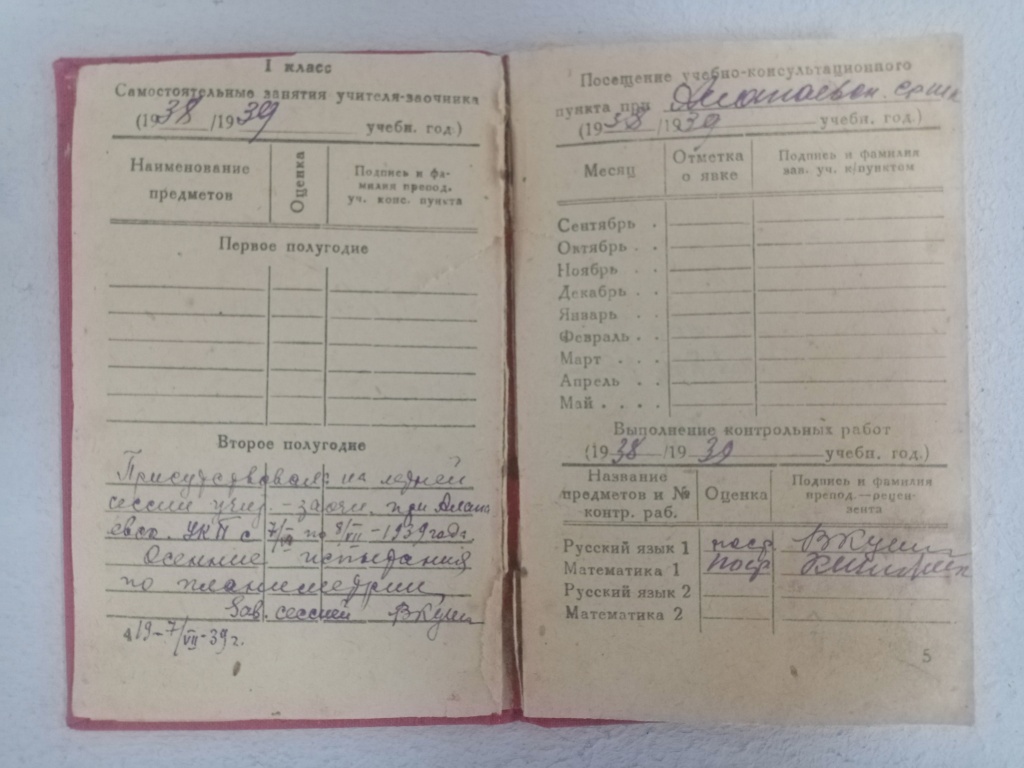 I класс
Самостоятельные занятия учителя-заочника
(1938/1939 учебн. год.)
Наименование предметов
Оценка
Подпись и фа-
милия препод.
уч. конс. пункта
Первое полугодие
Второе полугодие
Присутствовал: на летней
сессии учит.-заочн. при Алапа
евск. УКП с 7/VII по 8/VII-1939 года.
Осенние испытания
по планиметрии
Зав. сессией ВКущ
19-7/VII-39 г.
Посещение учебно-консультационного
пункта при Алапаевск.
(1938/1939 учебн. год.)
Месяц
Отметка
о явке
Подпись и фамилия
зав. уч. к/пунктом
Сентябрь . .
Октябрь . .
Ноябрь . .
Декабрь . .
Январь . .
Февраль . .
Март . . .
Апрель . . .
Май . . . .
Выполнение контрольных работ
(1938/1939 учебн. год.)
Название
предметов и №
контр. раб.
Оценка
Подпись и фамилия
препод.—рецен-
зента
Русский язык 1 поср
Математика 1 поср
Русский язык 2
Математика 2
5